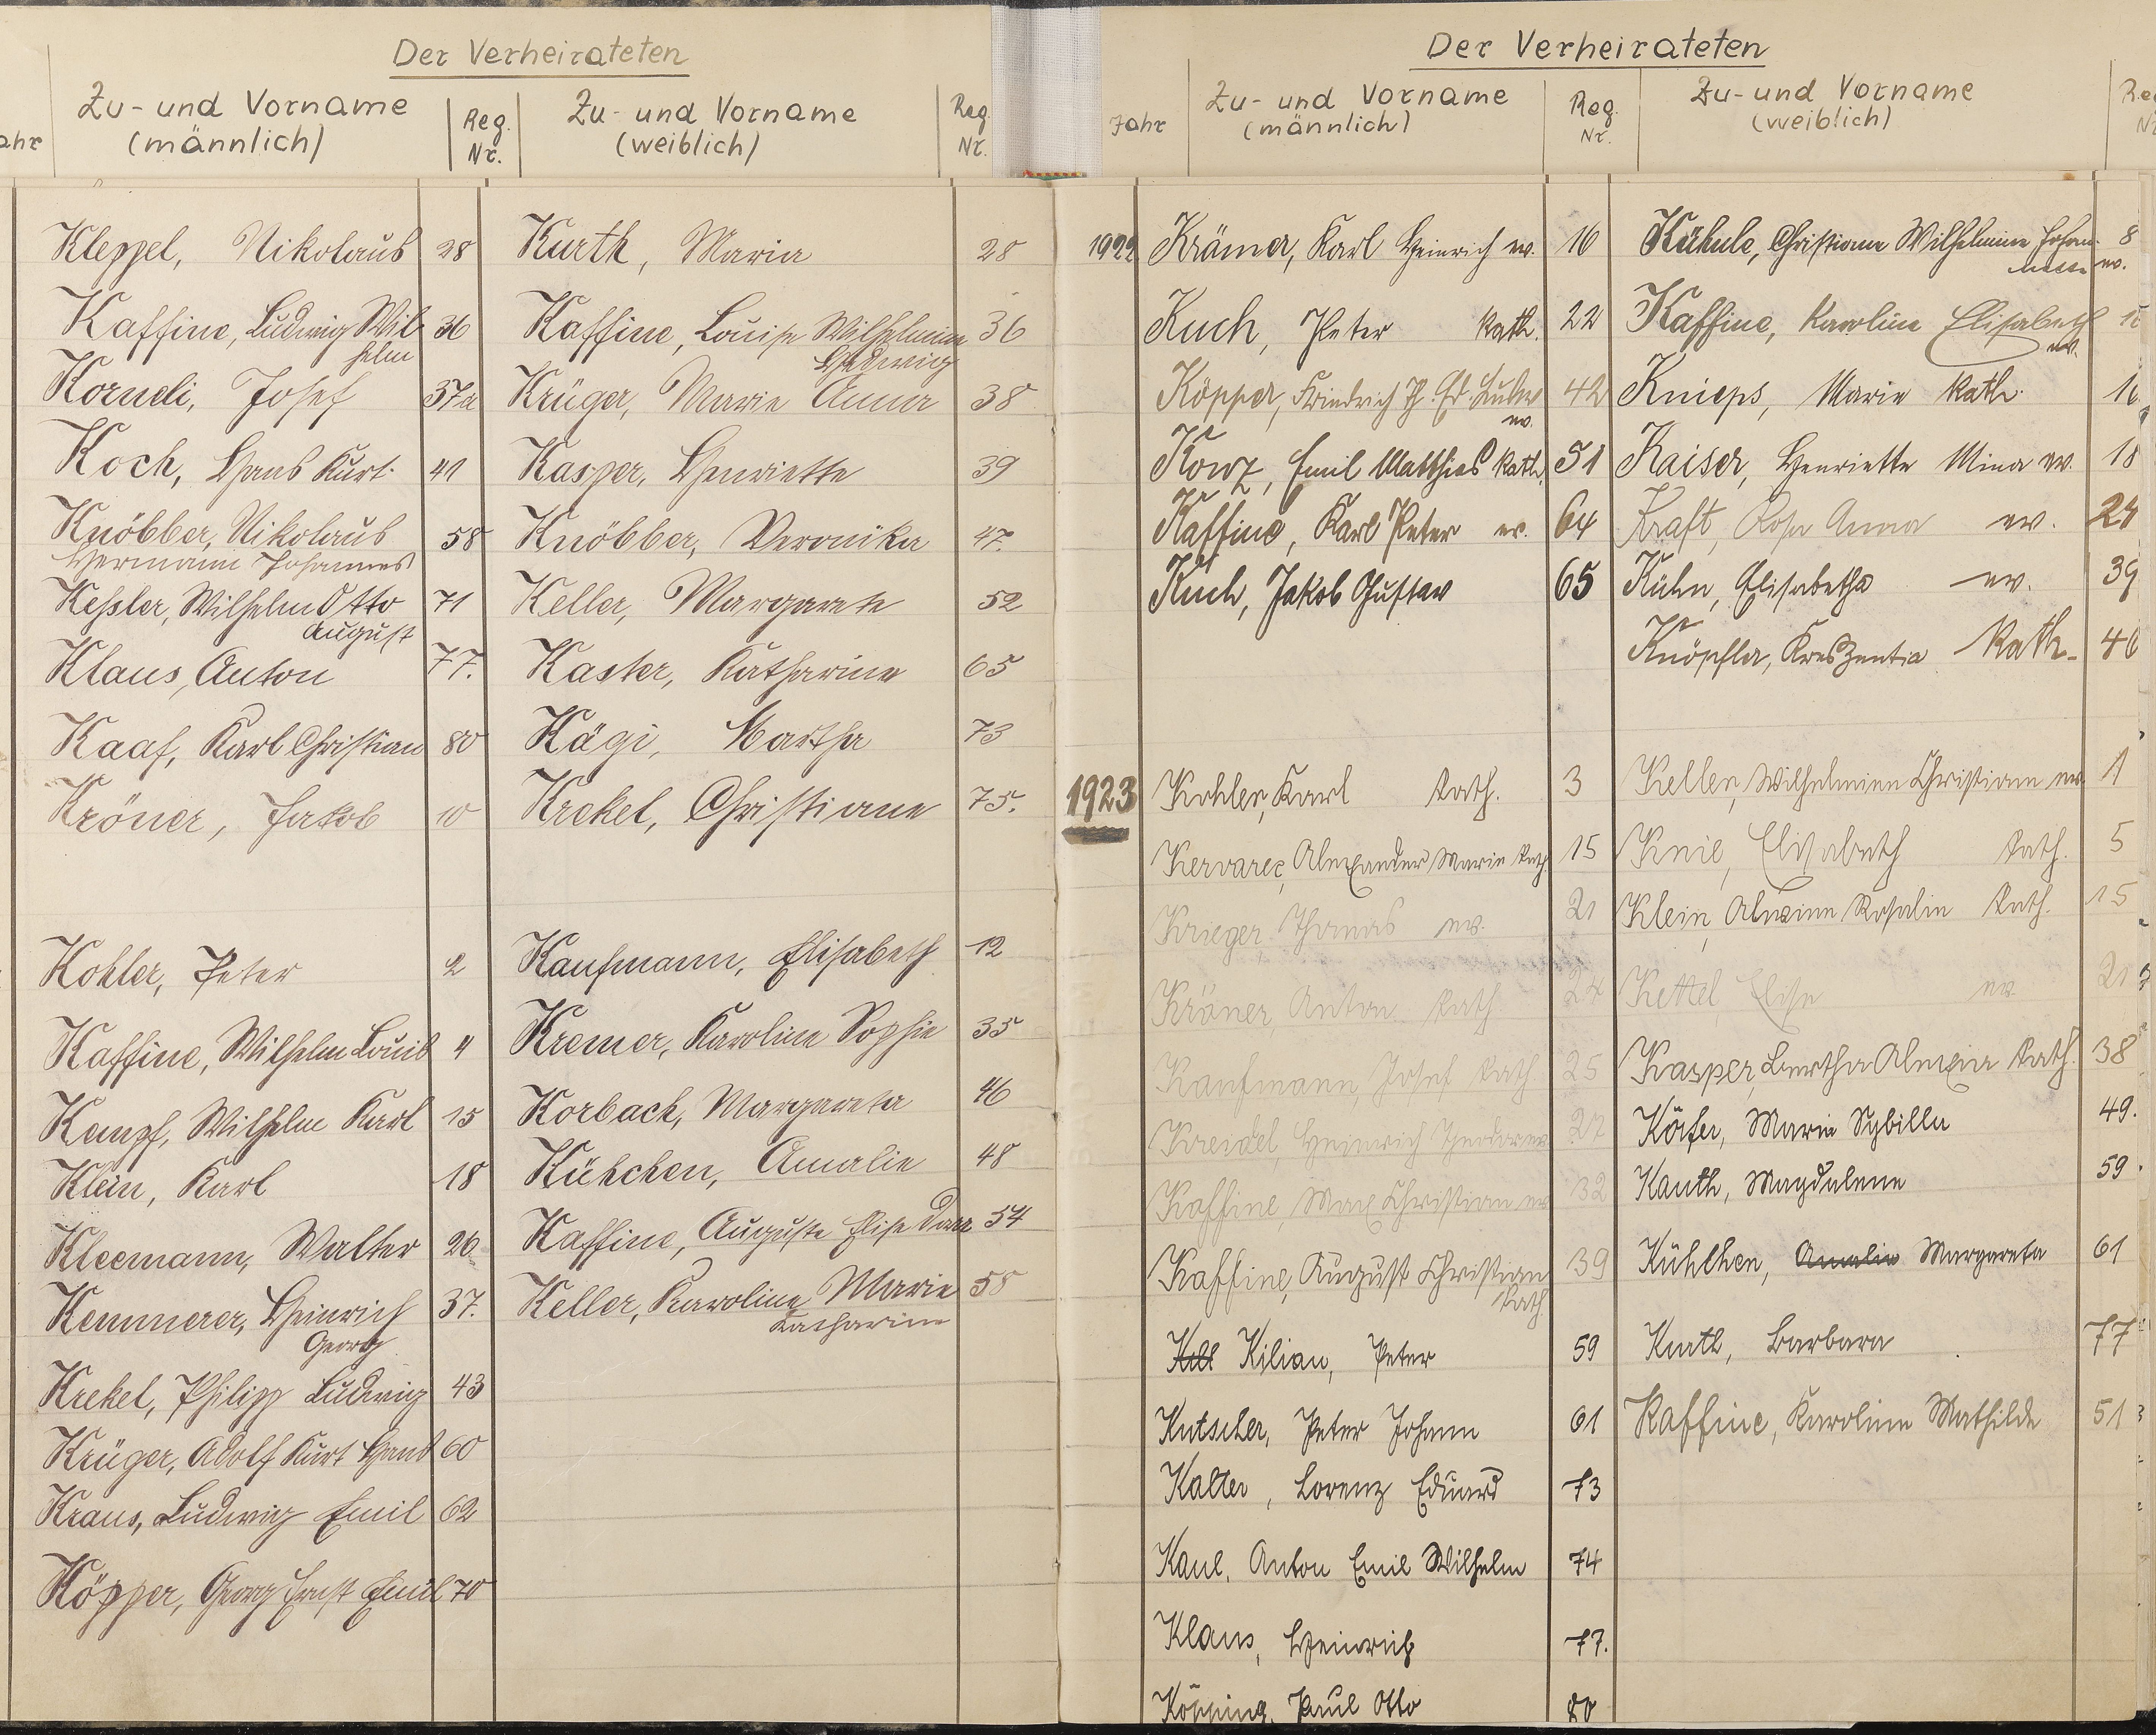 Der Verheirateten
ahr
Zu- und Vorname
(männlich)
Reg.
Nr.
Zu- und Vorname
(weiblich)
Reg.
Nr.
Kleppel, Nikolaus 28 Kurth, Maria 28
Kaffine, Ludwig Wil- 36 Kaffine, Louise Wilhelmine 36
helm Hedwig
Korneli, Josef 37a Krüger, Marie Anna 38
Koch, Hans Kurt 41 Kasper, Henriette 39
Knöbber, Nikolaus 58 Knöbber, Veronika 47.
Hermann Johannes
Keßler, Wilhelm Otto 71 Keller, Margarete 52
August
Klaus, Anton 77. Kaster, Katharine 65
Kaaf, Karl Christian 80 Kägi, Martha 73
Kröner, Jakob 10 Krekel, Christiane 75.
Kohler, Peter 2 Kaufmann, Elisabeth 12
Kaffine, Wilhelm Louis 4 Kremer, Karoline Sophie 35
Kempf, Wilhelm Karl 15 Korbach, Margareta 46
Klein, Karl 18 Kühchen, Amalie 48
Kleemann, Walter 26 Kaffine, Auguste Elise Dora 54
Kemmerer, Heinrich 37. Keller, Karoline Marie 58
Georg Katharine
Krekel, Philipp Ludwig 43
Krüger, Adolf Kurt Hans 60
Kraus, Ludwig Emil 62
Köpper, Georg Ernst Emil 70
Der Verheirateten
Jahr
Zu- und Vorname
(männlich)
Reg.
Nr.
Zu- und Vorname
(weiblich)
1922 Krämer, Karl Heinrich ev. 16 Kühule, Christiane Wilhelmine Johan- 8
ev.
Kuch, Peter kath. 22 Kaffine, Karoline Elisabeth
ev.
Köpper, Friedrich 42 Knieps, Marie kath. 16
ev.
Konz, Emil Matthias kath. 51 Kaiser, Henriette Mina ev. 18
Kaffine, Karl Peter ev. 64 Kraft, Rosa Anna ev. 24
Kuch, Jakob Gustav 65 Kühn, Elisabetha ev. 39
Knöpfler, Kreszentia kath. 40
1923 Kohler, Karl kath. 3 Keller, Wilhelmine Christiane ev. 1
Kervarec, Alexander Marie kath. 15 Knie, Elisabeth kath. 5
Krieger, Thomas ev. 21 Klein, Alwine Rosalie kath. 15
Kröner, Anton kath. 24 Kettel Elise ev 21
Kaufmann, Josef kath 25 Kasper, Bertha Alwine kath. 38
Kreidel, Heinrich Theodor ev 27 Körfer, Maria Sybilla 49.
Kaffine, Max Christian ev 32 Kauth, Magdalene 59.
Kaffine, August Christian 39 Kühlhen, Amalie Margareta 61
kath
Kill Kilian, Peter 59 Kurth, Barbara 77
Kutscher, Peter Johann 61 Kaffine, Karoline Mathilde 51
Kalter, Lorenz Eduard 73
Kaul, Anton Emil Wilhelm 74
Klaus, Heinrich 77.
Köpping, Paul Otto 80